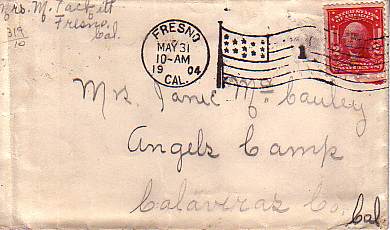 Mrs. M. Tackett
Fresno,
Cal.
319
10
FRESNO
MAY 31
10-AM
19 04
CAL.
1
Mrs Janie McCauley
Angels Camp
Calaveras Co.
Cal.